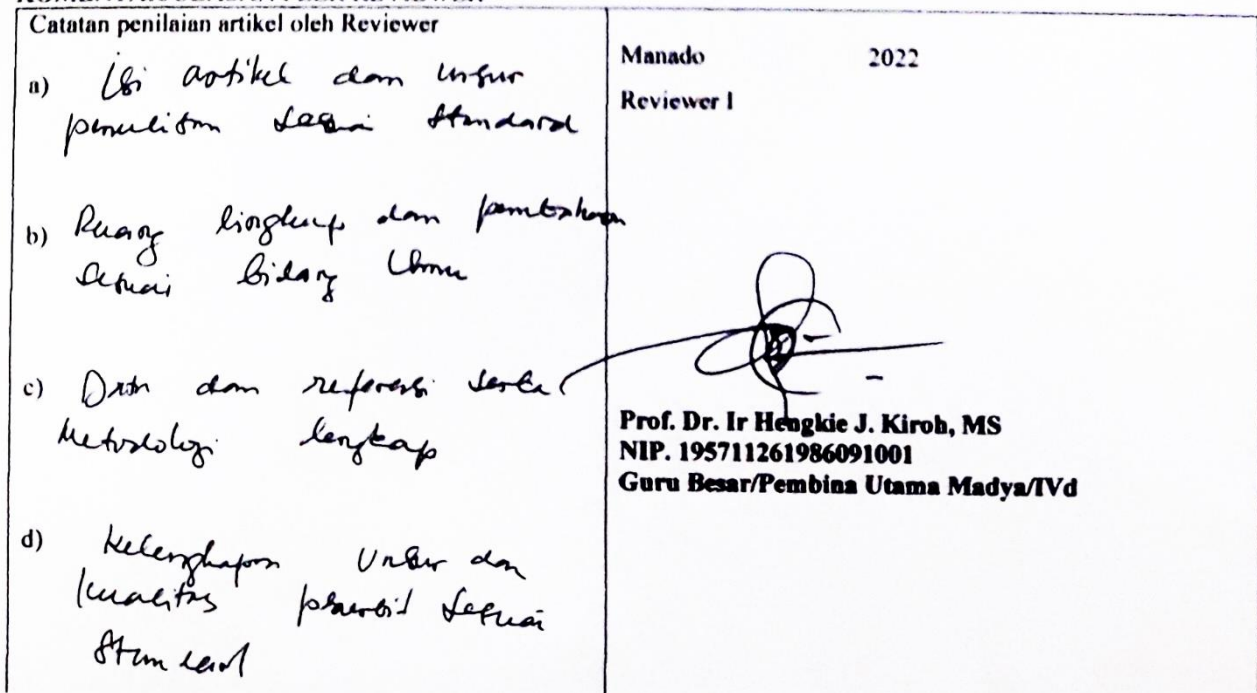 Catatan penilaian artikel oleh Reviewer
a) Isi artikel dan unsur
penulisan sesuai standard
b) Ruang lingkup dan pembahasan
sesuai bidang ilmu
c) Data dan referensi serta
Metodologi lengkap
d) Kelengkapan Unsur dan
kualitas penerbit sesuai
standard
Manado 2022
Reviewer I
Prof. Dr. Ir Hengkie J. Kiroh, MS
NIP. 195711261986091001
Guru Besar/Pembina Utama Madya/IVd